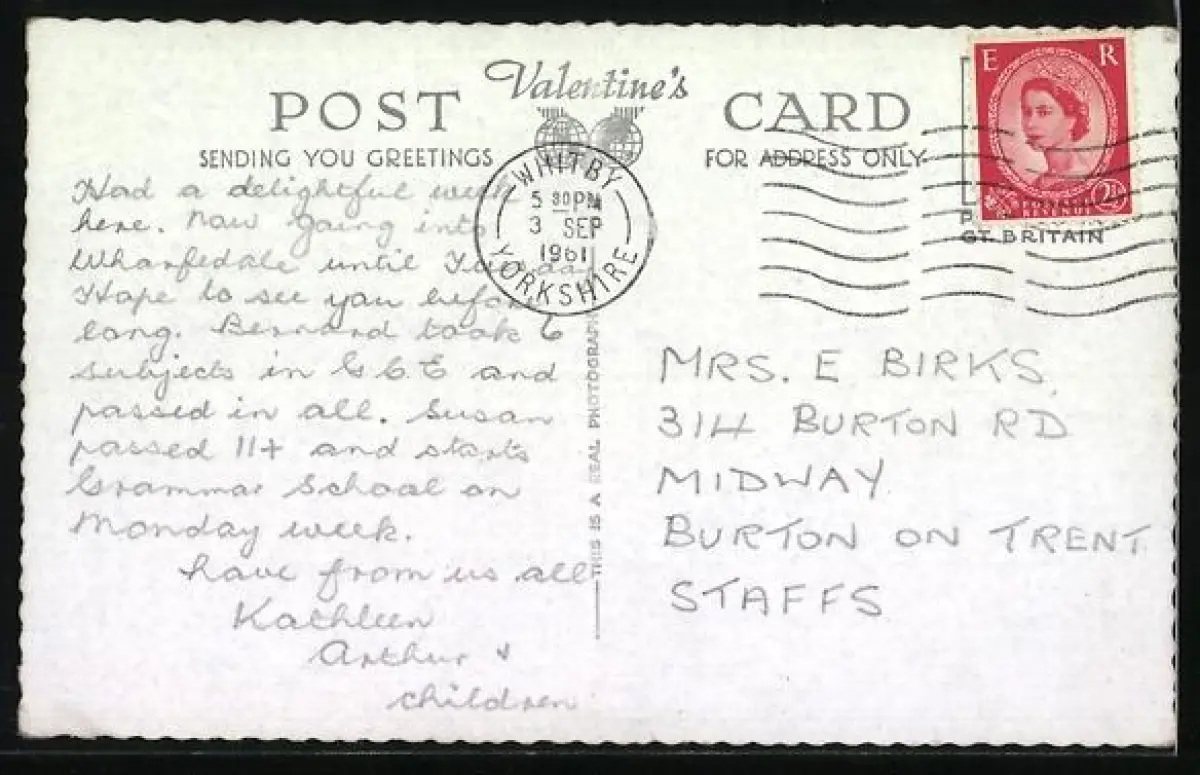 POST Valentine's CARD
SENDING YOU GREETINGS
FOR ADDRESS ONLY
E R
2½
REVENUE
GT. BRITAIN
WHITBY
5 30PM
3 SEP
1961
YORKSHIRE
Had a delightful week
here. Now going into
Wharfedale until
Hope to see you before
long. Bernard took 6
subjects in G.C.E and
passed in all. Susan
passed 11+ and starts
Grammar School on
Monday week.
Love from us all
Kathleen
Arthur &
children
THIS IS A REAL PHOTOGRAPH
MRS. E BIRKS.
314 BURTON RD
MIDWAY
BURTON ON TRENT
STAFFS